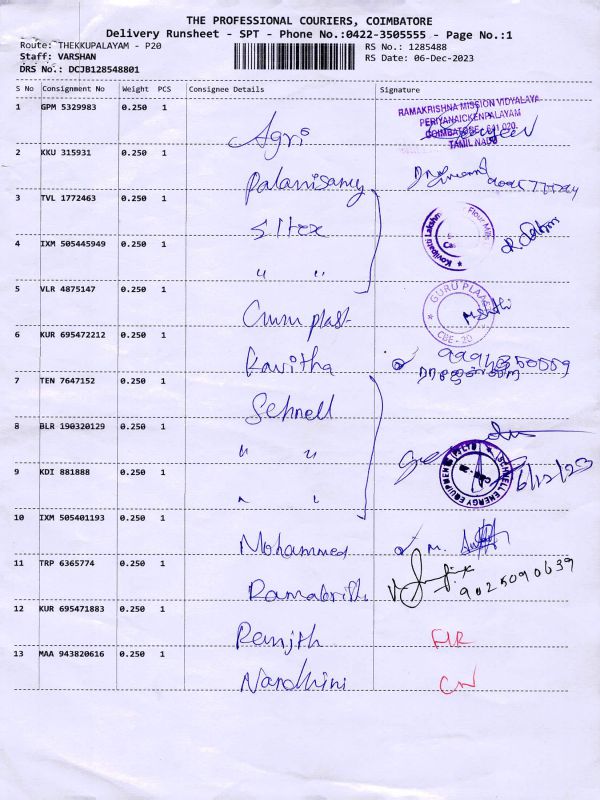 THE PROFESSIONAL COURIERS, COIMBATORE
Delivery Runsheet - SPT - Phone No.:0422-3505555 - Page No.:1
Route: THEKKUPALAYAM - P20
RS No.: 1285488
Staff: VARSHAN
RS Date: 06-Dec-2023
DRS No.: DCJB128548801
S No Consignment No Weight PCS Consignee Details Signature
1 GPM 5329983 0.250 1 Agri
RAMAKRISHNA MISSION VIDYALAYA
PERIYANAICKENPALAYAM
COIMBATORE - 641 020
TAMIL NADU
2 KKU 315931 0.250 1 Palanisamy
3 TVL 1772463 0.250 1 Sitex
4 IXM 505445949 0.250 1 " "
Kovilpatti Lakshmi Flour Mills
5 VLR 4875147 0.250 1 Guru plast
GURU PLAAST
CBE - 20
6 KUR 695472212 0.250 1 Kavitha
7 TEN 7647152 0.250 1 Schnell
8 BLR 190320129 0.250 1 " "
9 KDI 881888 0.250 1 " "
SCHNELL ENERGY EQUIPMENT (P) LTD
6/12/23
10 IXM 505401193 0.250 1 Mohammed
11 TRP 6365774 0.250 1
9025090639
12 KUR 695471883 0.250 1 Renjith
13 MAA 943820616 0.250 1 Nandhini CN